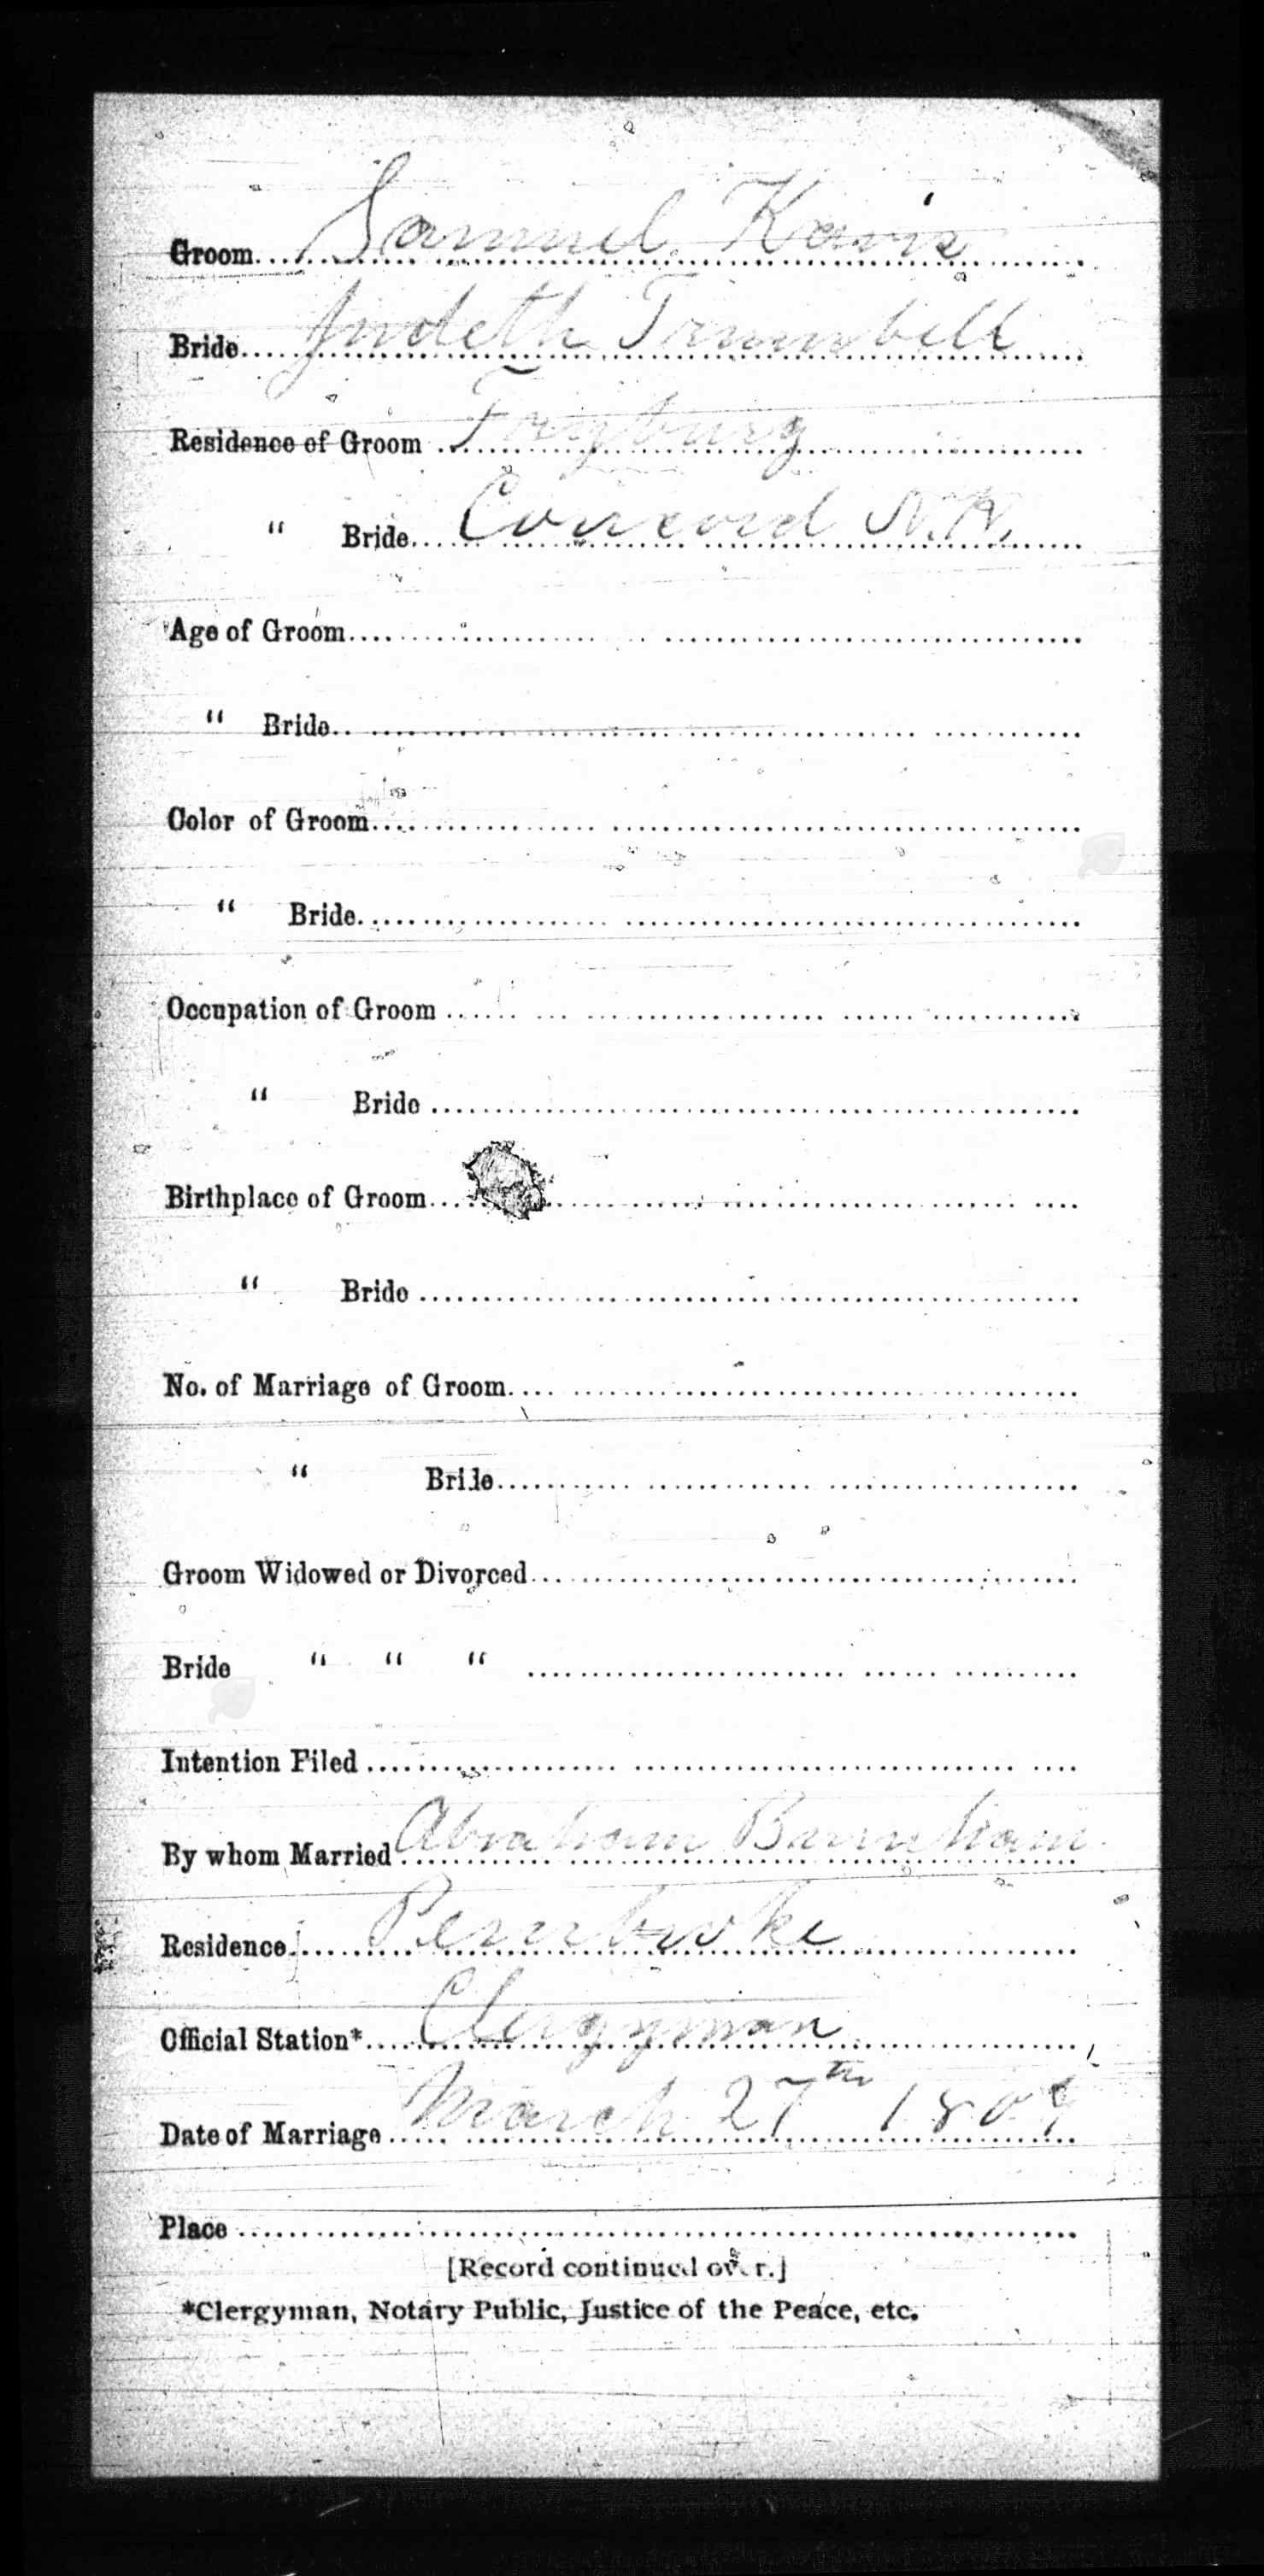 Groom Samuel Kavis
Bride Judeth Trumbull
Residence of Groom
" Bride Concord N.H.
Age of Groom
" Bride
Color of Groom
" Bride
Occupation of Groom
" Bride
Birthplace of Groom
" Bride
No. of Marriage of Groom
" Bride
Groom Widowed or Divorced
Bride " " "
Intention Filed
By whom Married Abraham Burnham
Residence Pembroke
Official Station* Clergyman
Date of Marriage March 27th 1809
Place
[Record continued over.]
*Clergyman, Notary Public, Justice of the Peace, etc.